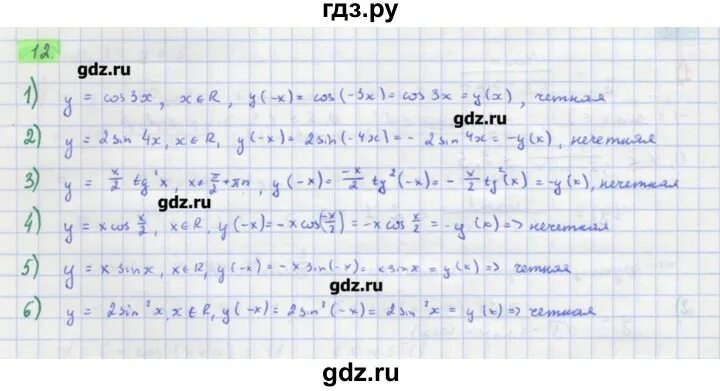 гдз.ру
12.
gdz.ru
1) y = cos3x, x∈R, y(-x)= cos(-3x)= cos3x = y(x), четная
gdz.ru
2) y = 2sin 4x, x∈R, y(-x)= 2sin(-4x)= - 2sin4x = -y(x), нечетная
3) y = x/2 tg²x, x≠π/2+πn, y(-x)= -x/2 tg²(-x)= - x/2 tg²(x) = -y(x), нечетная
gdz.ru
4) y = x cos x/2, x∈R, y(-x)= -x cos(-x/2) = -x cos x/2 = -y(x) => нечетная
5) y = x sinx, x∈R, y(-x) = -x sin(-x)= x sinx = y(x) => четная
gdz.ru
6) y = 2sin²x, x∈R, y(-x)= 2sin²(-x)= 2sin²x = y(x) => четная
gdz.ru